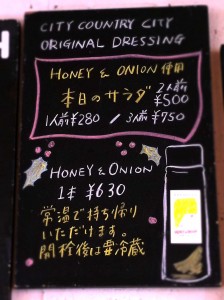 CITY COUNTRY CITY
ORIGINAL DRESSING
HONEY & ONION 使用
本日のサラダ 2人前 ¥500
1人前 ¥280 / 3人前 ¥750
HONEY & ONION
1本 ¥630
常温で持ち帰り
いただけます。
開栓後は要冷蔵